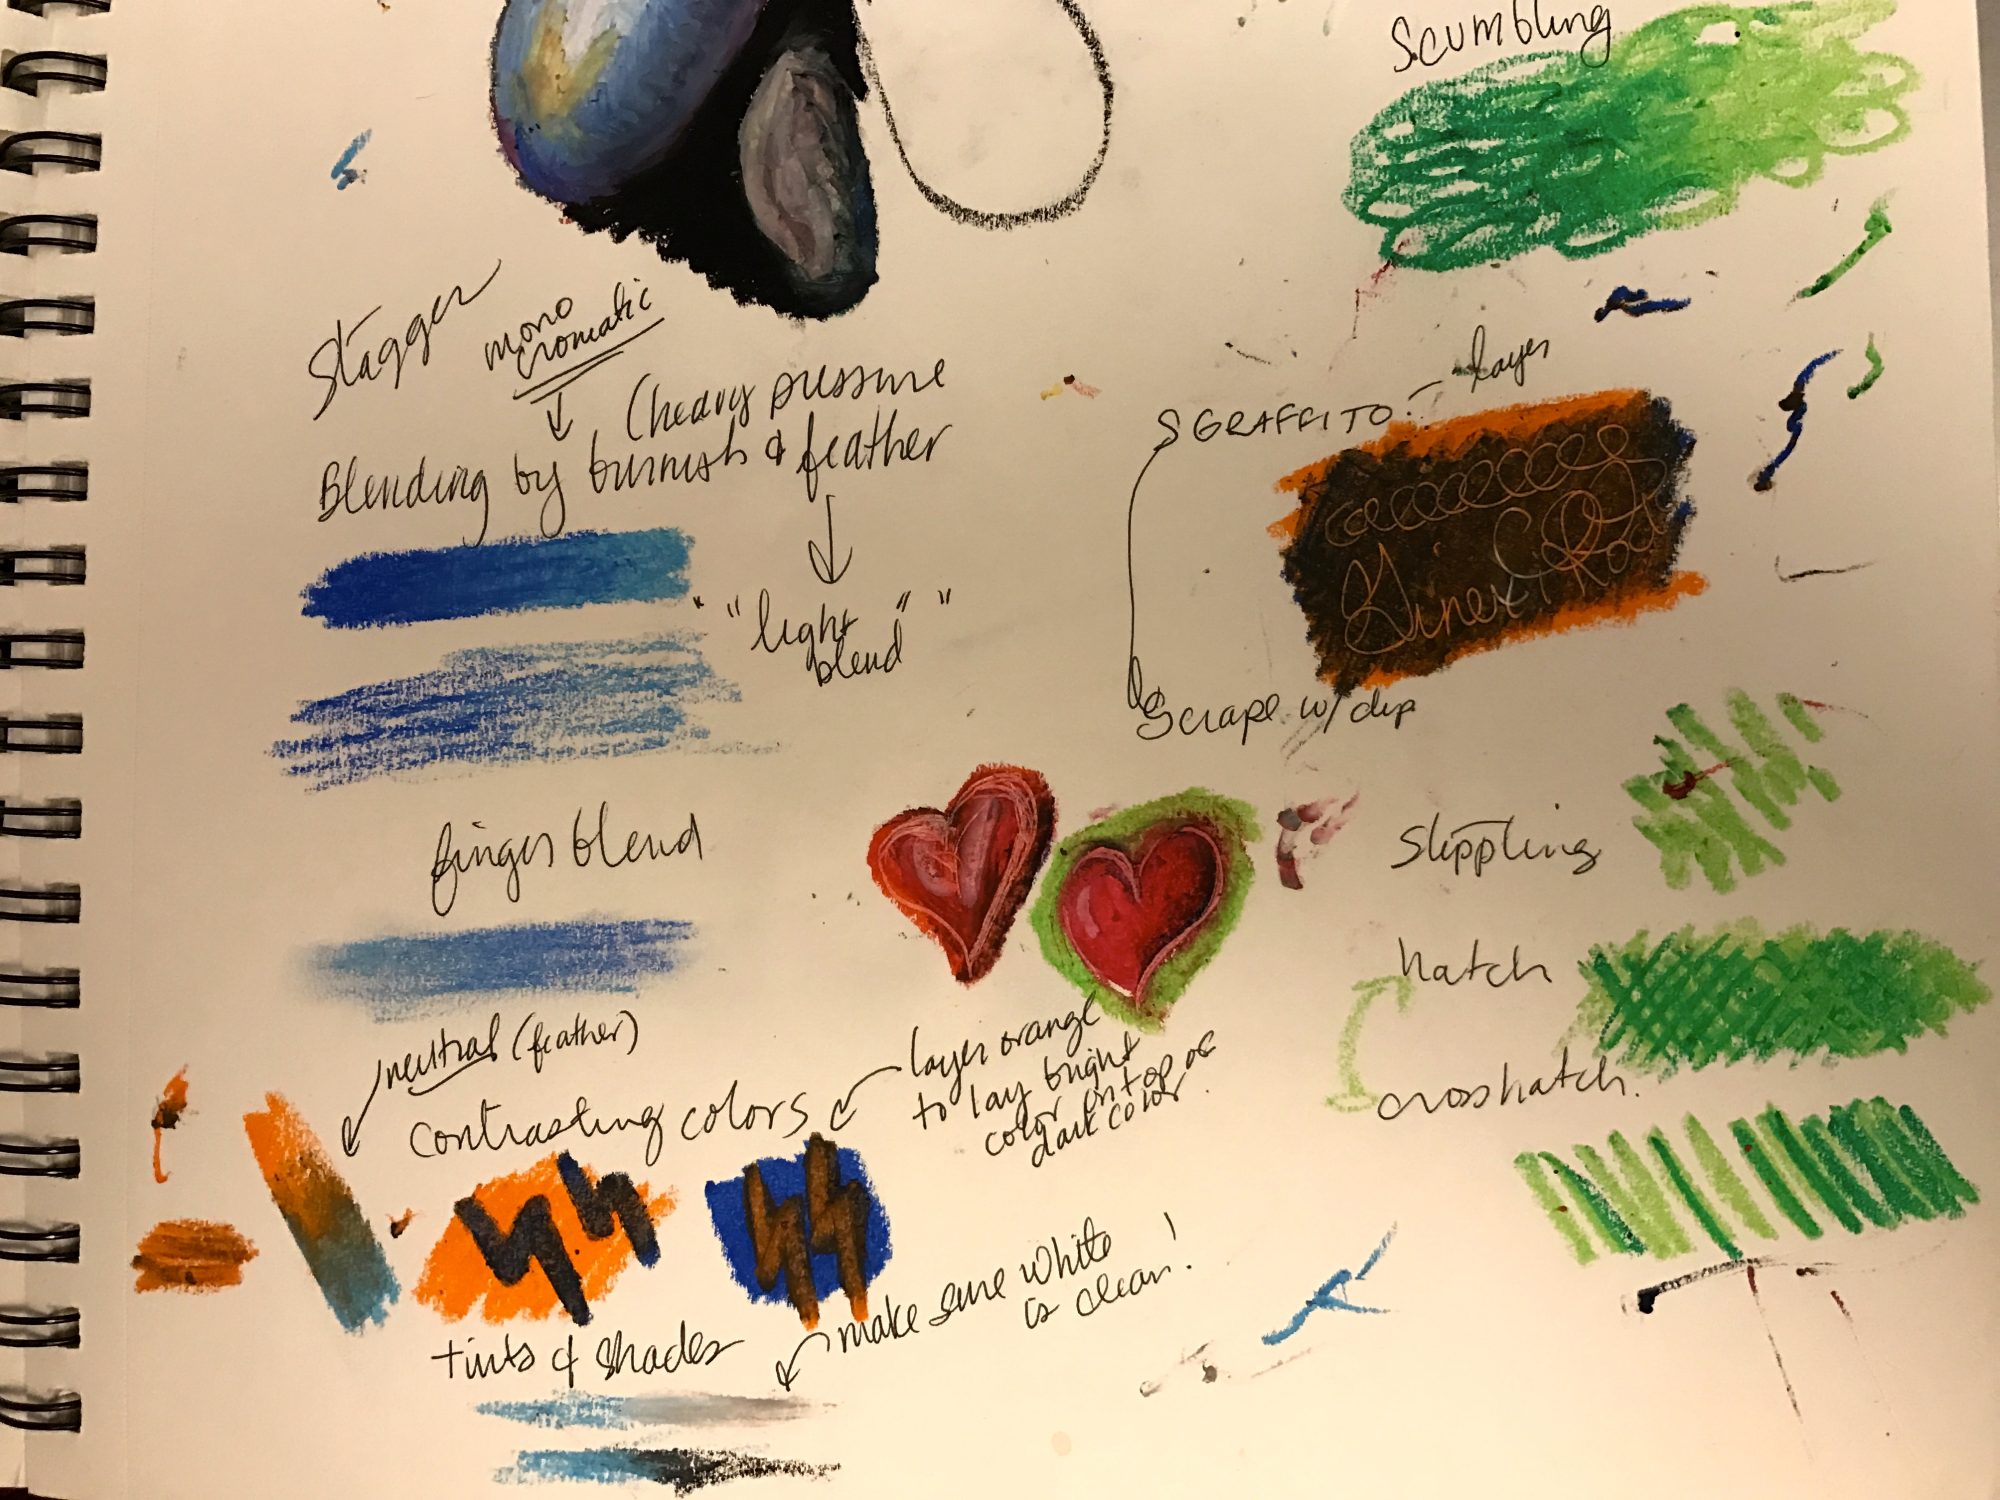 Scumbling
Stagger
mono
cromatic
(heavy pressure
Blending by burnish & feather
" "light
blend" "
SGRAFFITO - layer
Scrape w/ clip
finger blend
Stippling
hatch
crosshatch.
neutral (feather)
contrasting colors
layer orange
to lay bright
color on top of
dark color.
tints & shades
make sure white
is clean!